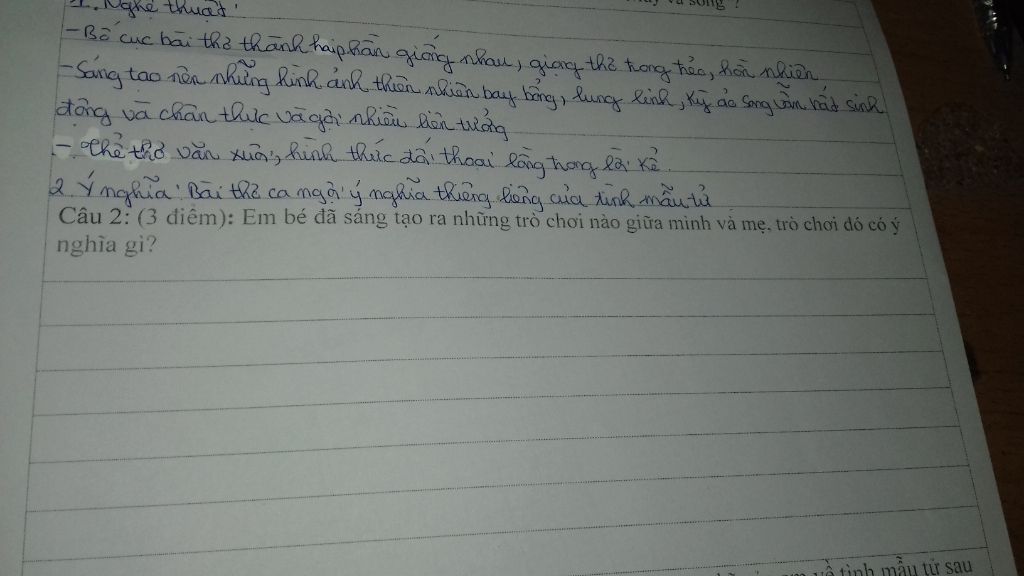 1. Nghệ thuật:
mây và sóng"?
- Bố cục bài thơ thành hai phần giống nhau, giọng thơ trong trẻo, hồn nhiên
- Sáng tạo nên những hình ảnh thiên nhiên bay bổng, lung linh, kỳ ảo song vẫn rất sinh
động và chân thực và gợi nhiều liên tưởng
- Thể thơ văn xuôi, hình thức đối thoại lồng trong lời kể.
2. Ý nghĩa: Bài thơ ca ngợi ý nghĩa thiêng liêng của tình mẫu tử
Câu 2: (3 điểm): Em bé đã sáng tạo ra những trò chơi nào giữa mình và mẹ, trò chơi đó có ý
nghĩa gì?
về tình mẫu tử sau